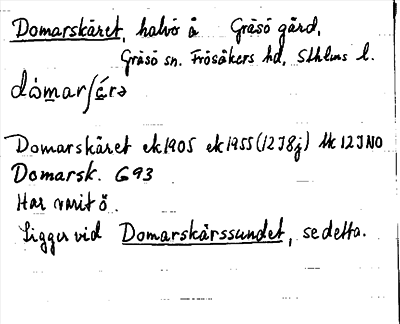 Domarskäret, halvö å Gräsö gård,
Gräsö sn. Frösåkers hd, Sthlms l.
dòmarʃǽrə
Domarskäret ek 1905 ek 1955 (12J8j) tk 12J NO
Domarsk. G93
Har varit ö.
Ligger vid Domarskärssundet, se detta.